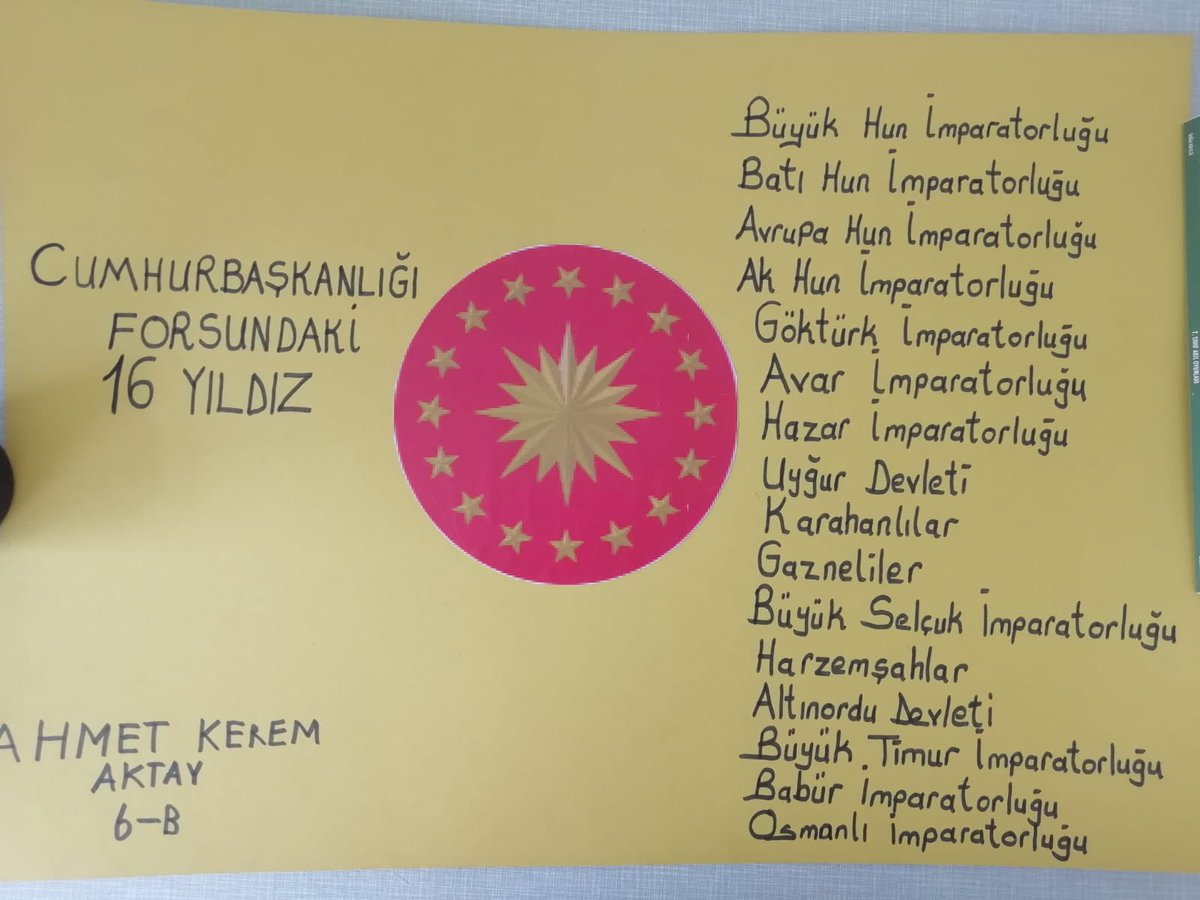 CUMHURBAŞKANLIĞI
FORSUNDAKİ
16 YILDIZ
Büyük Hun İmparatorluğu
Batı Hun İmparatorluğu
Avrupa Hun İmparatorluğu
Ak Hun İmparatorluğu
Göktürk İmparatorluğu
Avar İmparatorluğu
Hazar İmparatorluğu
Uyğur Devleti
Karahanlılar
Gazneliler
Büyük Selçuk İmparatorluğu
Harzemşahlar
Altınordu Devleti
Büyük Timur İmparatorluğu
Babür İmparatorluğu
Osmanlı İmparatorluğu
AHMET KEREM
AKTAY
6-B